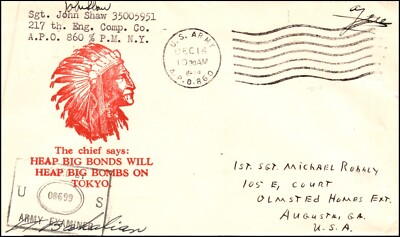 Sgt. John Shaw 35005951
217 th. Eng. Comp. Co.
A.P.O. 860 % P.M. N.Y.
U.S. ARMY
DEC 14
10 AM
A.P.O. 860
Free
The chief says:
HEAP BIG BONDS WILL
HEAP BIG BOMBS ON
TOKYO.
U S
08699
ARMY EXAMINER
1ST. SGT. MICHAEL ROHALY
105 E, COURT
OLMSTED HOMES EXT.
AUGUSTA, GA.
U.S.A.